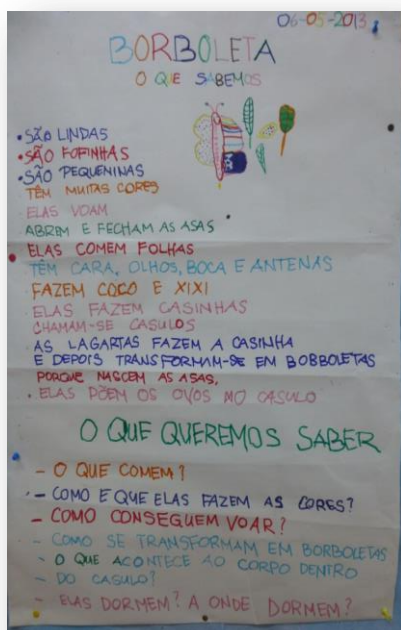 06-05-2013
BORBOLETA
O QUE SABEMOS
• SÃO LINDAS
• SÃO FOFINHAS
• SÃO PEQUENINAS
TÊM MUITAS CORES
ELAS VOAM
ABREM E FECHAM AS ASAS
ELAS COMEM FOLHAS
TÊM CARA, OLHOS, BOCA E ANTENAS
FAZEM COCO E XIXI
ELAS FAZEM CASINHAS
CHAMAM-SE CASULOS
AS LAGARTAS FAZEM A CASINHA
E DEPOIS TRANSFORMAM-SE EM BOBBOLETAS
PORQUE NASCEM AS ASAS.
• ELAS PÕEM OS OVOS MO CASULO
O QUE QUEREMOS SABER
- O QUE COMEM?
- COMO E QUE ELAS FAZEM AS CORES?
- COMO CONSEGUEM VOAR?
- COMO SE TRANSFORMAM EM BORBOLETAS
- O QUE ACONTECE AO CORPO DENTRO
- DO CASULO?
- ELAS DORMEM? A ONDE DORMEM?